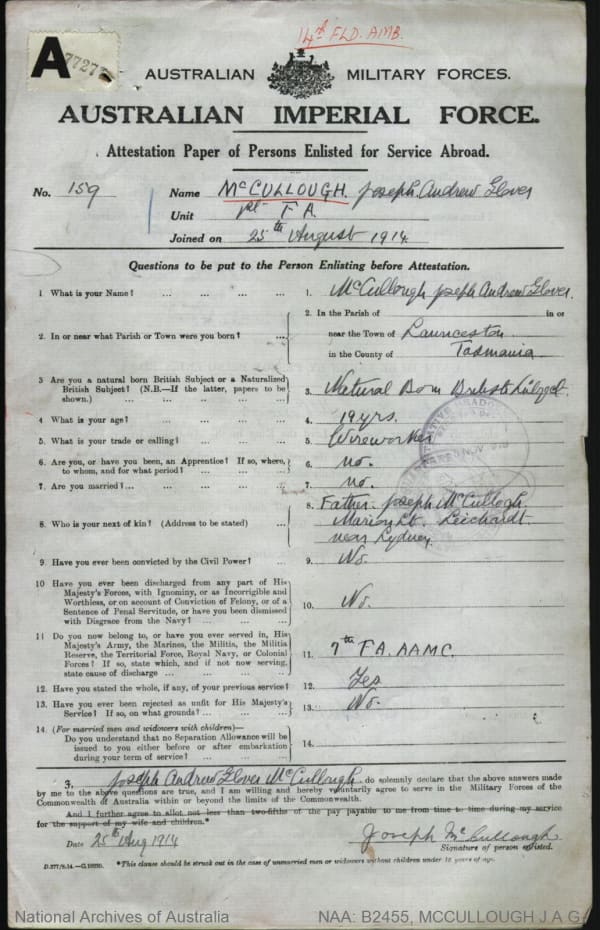 14th FLD. AMB.
A 7727
AUSTRALIAN MILITARY FORCES.
AUSTRALIAN IMPERIAL FORCE.
Attestation Paper of Persons Enlisted for Service Abroad.
No. 159 Name McCULLOUGH. Joseph Andrew Glover
Unit F A.
Joined on 25th August 1914
Questions to be put to the Person Enlisting before Attestation.
1. What is your Name? ... ... ... ... 1. McCullough Joseph Andrew Glover.
2. In or near what Parish or Town were you born? ... 2. In the Parish of in or
near the Town of Launceston
in the County of Tasmania
3. Are you a natural born British Subject or a Naturalized British Subject? (N.B.—If the latter, papers to be shown.) ... 3. Natural Born British Subject
4. What is your age? ... ... ... ... 4. 19 yrs.
5. What is your trade or calling? ... ... ... 5. Wireworker
6. Are you, or have you been, an Apprentice? If so, where, to whom, and for what period? ... 6. no.
7. Are you married? ... ... ... ... 7. no.
8. Who is your next of kin? (Address to be stated) ... 8. Father. Joseph McCullough
Marion St. Leichardt.
near Sydney.
9. Have you ever been convicted by the Civil Power? ... 9. No.
10. Have you ever been discharged from any part of His Majesty's Forces, with Ignominy, or as Incorrigible and Worthless, or on account of Conviction of Felony, or of a Sentence of Penal Servitude, or have you been dismissed with Disgrace from the Navy? ... 10. No.
11. Do you now belong to, or have you ever served in, His Majesty's Army, the Marines, the Militia, the Militia Reserve, the Territorial Force, Royal Navy, or Colonial Forces? If so, state which, and if not now serving, state cause of discharge ... 11. 7th F A. AAMC.
12. Have you stated the whole, if any, of your previous service? 12. Yes
13. Have you ever been rejected as unfit for His Majesty's Service? If so, on what grounds? ... 13. No.
14. (For married men and widowers with children)—
Do you understand that no Separation Allowance will be issued to you either before or after embarkation during your term of service? ... 14.
I, Joseph Andrew Glover McCullough do solemnly declare that the above answers made
by me to the above questions are true, and I am willing and hereby voluntarily agree to serve in the Military Forces of the
Commonwealth of Australia within or beyond the limits of the Commonwealth.
And I further agree to allot not less than two-fifths of the pay payable to me from time to time during my service
for the support of my wife and children.*
Date 25th Aug 1914 Joseph McCullough
Signature of person enlisted.
D.277/9.14.—C.10220. *This clause should be struck out in the case of unmarried men or widowers without children under 18 years of age.
National Archives of Australia NAA: B2455, MCCULLOUGH J A G